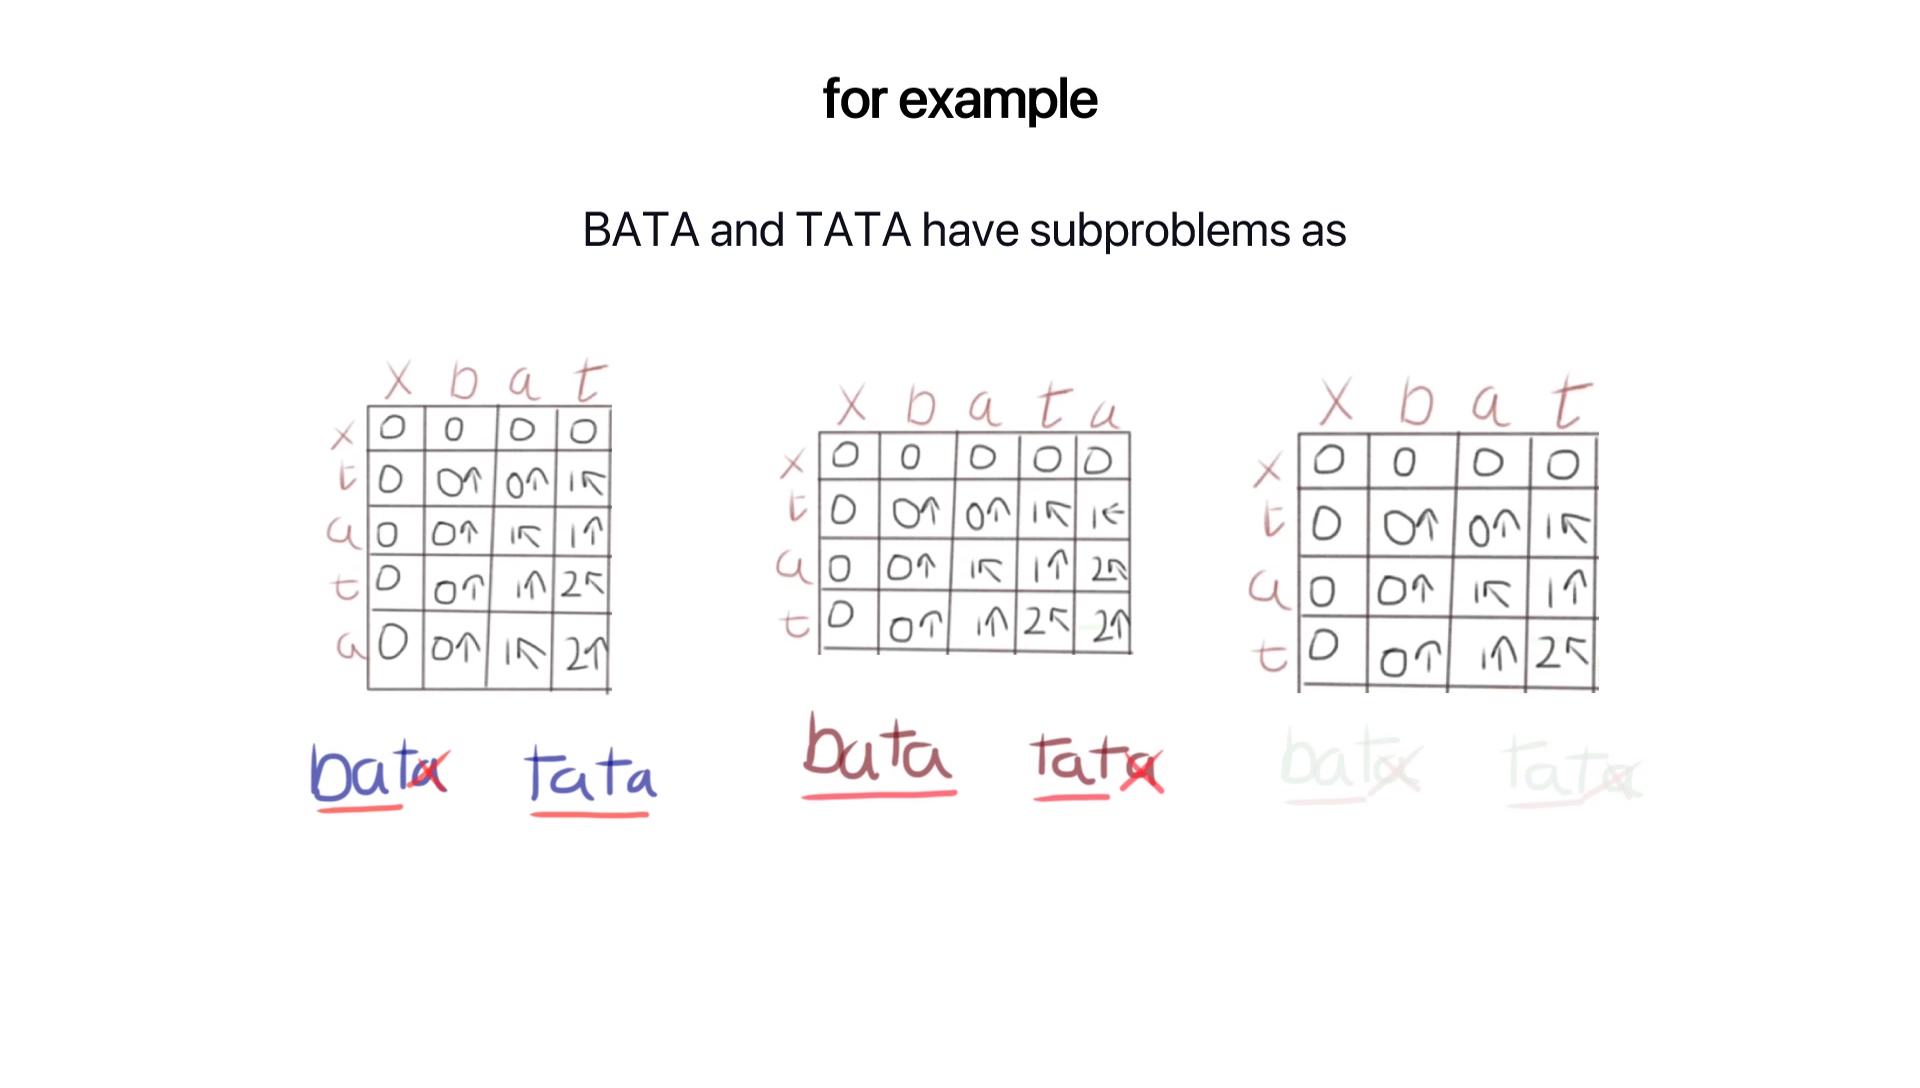 for example
BATA and TATA have subproblems as
x b a t
x 0 0 0 0
t 0 0↑ 0↑ 1↖
a 0 0↑ 1↖ 1↑
t 0 0↑ 1↑ 2↖
a 0 0↑ 1↖ 2↑
bata tata
x b a t a
x 0 0 0 0 0
t 0 0↑ 0↑ 1↖ 1←
a 0 0↑ 1↖ 1↑ 2↖
t 0 0↑ 1↑ 2↖ 2↑
bata tata
x b a t
x 0 0 0 0
t 0 0↑ 0↑ 1↖
a 0 0↑ 1↖ 1↑
t 0 0↑ 1↑ 2↖
bata tata